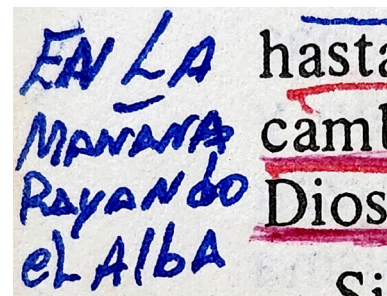 EN LA
MAÑANA
RAYANdo
eL AlbA
hasta
camb
Dios
Si